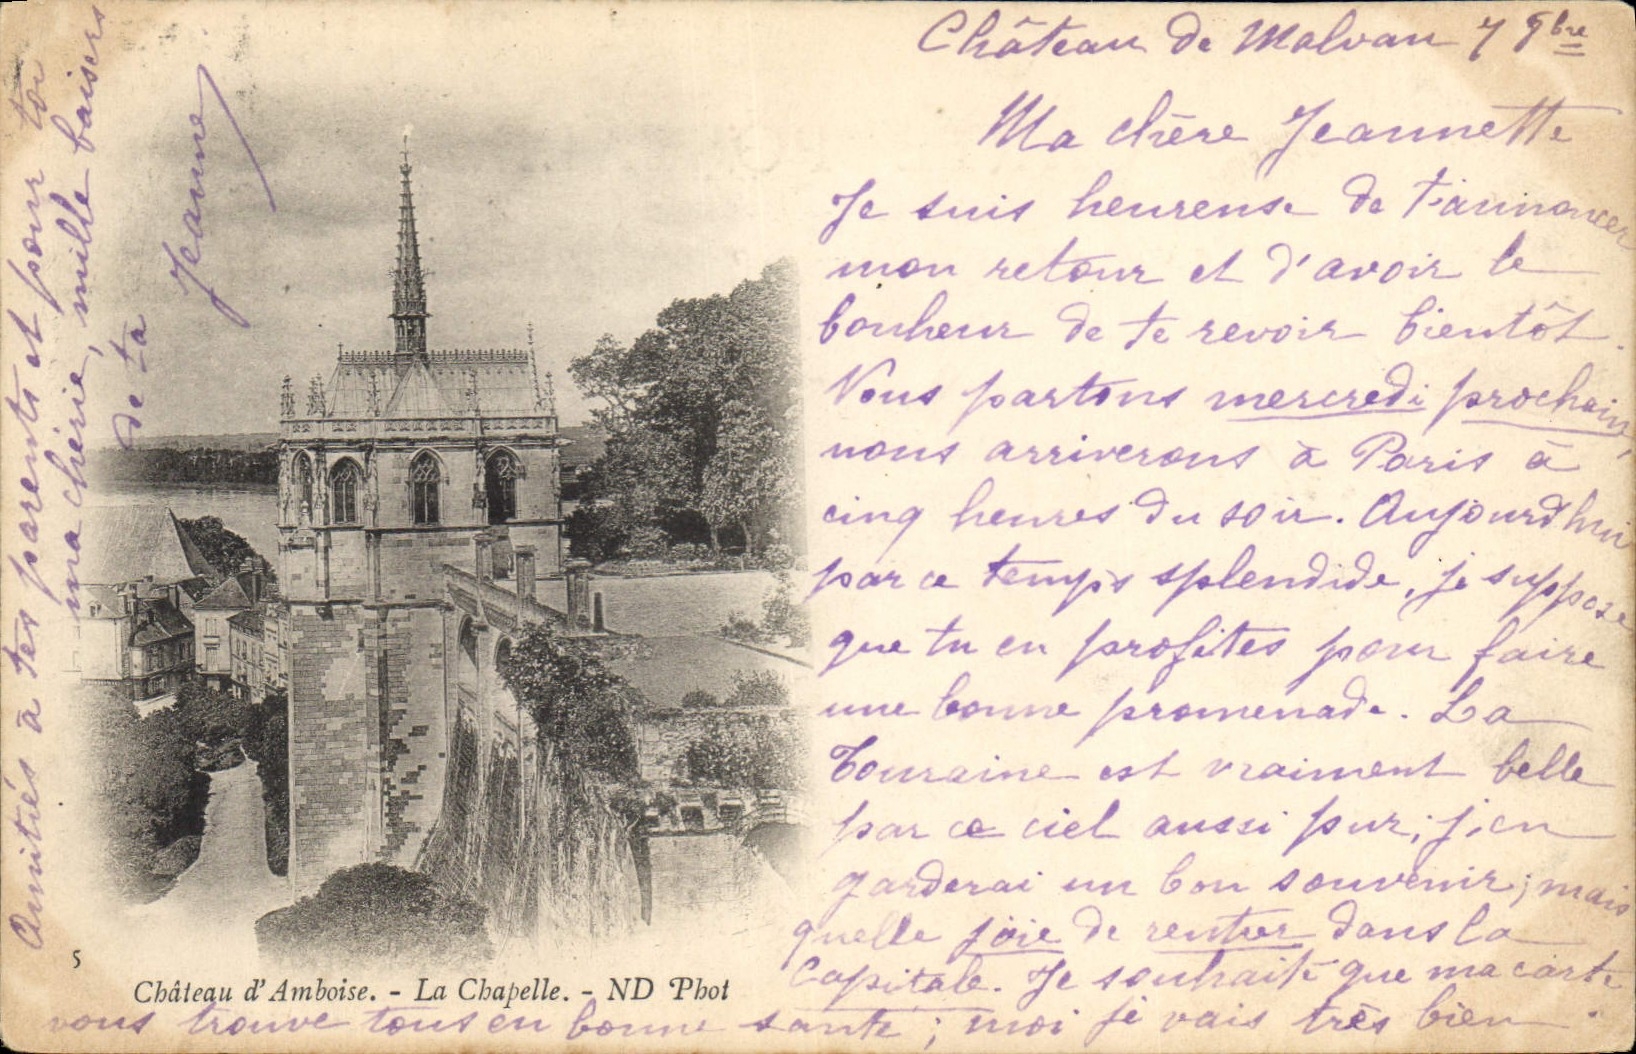 Château de Malvau 7 9bre
Ma chère Jeannette
Je suis heureuse de t'annoncer
mon retour et d'avoir le
bonheur de te revoir bientôt.
Nous partons mercredi prochain,
nous arriverons à Paris à
cinq heures du soir. Aujourd'hui
par ce temps splendide, je suppose
que tu en profites pour faire
une bonne promenade. La
Touraine est vraiment belle
par ce ciel aussi pur; j'en
garderai un bon souvenir; mais
quelle joie de rentrer dans la
Capitale. Je souhaite que ma carte
vous trouve tous en bonne santé; moi je vais très bien.
Amitiés à tes parents et pour toi
ma chérie, mille baisers
de ta
Jeanne
5
Château d'Amboise. - La Chapelle. - ND Phot